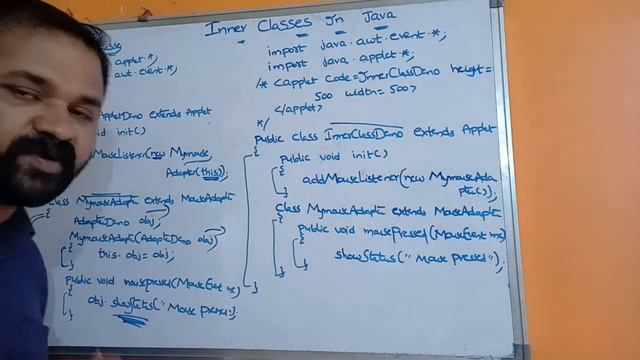 Inner Classes In Java
applet.*;
awt.event.*;
AppletDemo extends Applet
id init()
MouseListener(new Mymouse
Adapter(this));
class MymouseAdapte extends MouseAdapte
AdapteDemo obj;
MymouseAdapte(AdapteDemo obj)
{
this.obj = obj;
}
public void mousepressed(MouseEvent me)
{
obj.showStatus("Mouse
}
import java.awt.event.*;
import java.applet.*;
/* <applet code=InnerClassDemo height=
500 width=500>
</applet>
*/
public class InnerClassDemo extends Applet
{
public void init()
{
addMouseListener(new MymouseAda
pter());
}
class MymouseAdapte extends MouseAdapte
{
public void mousepressed(MouseEvent me)
{
showStatus("Mouse pressed");
}
}
}